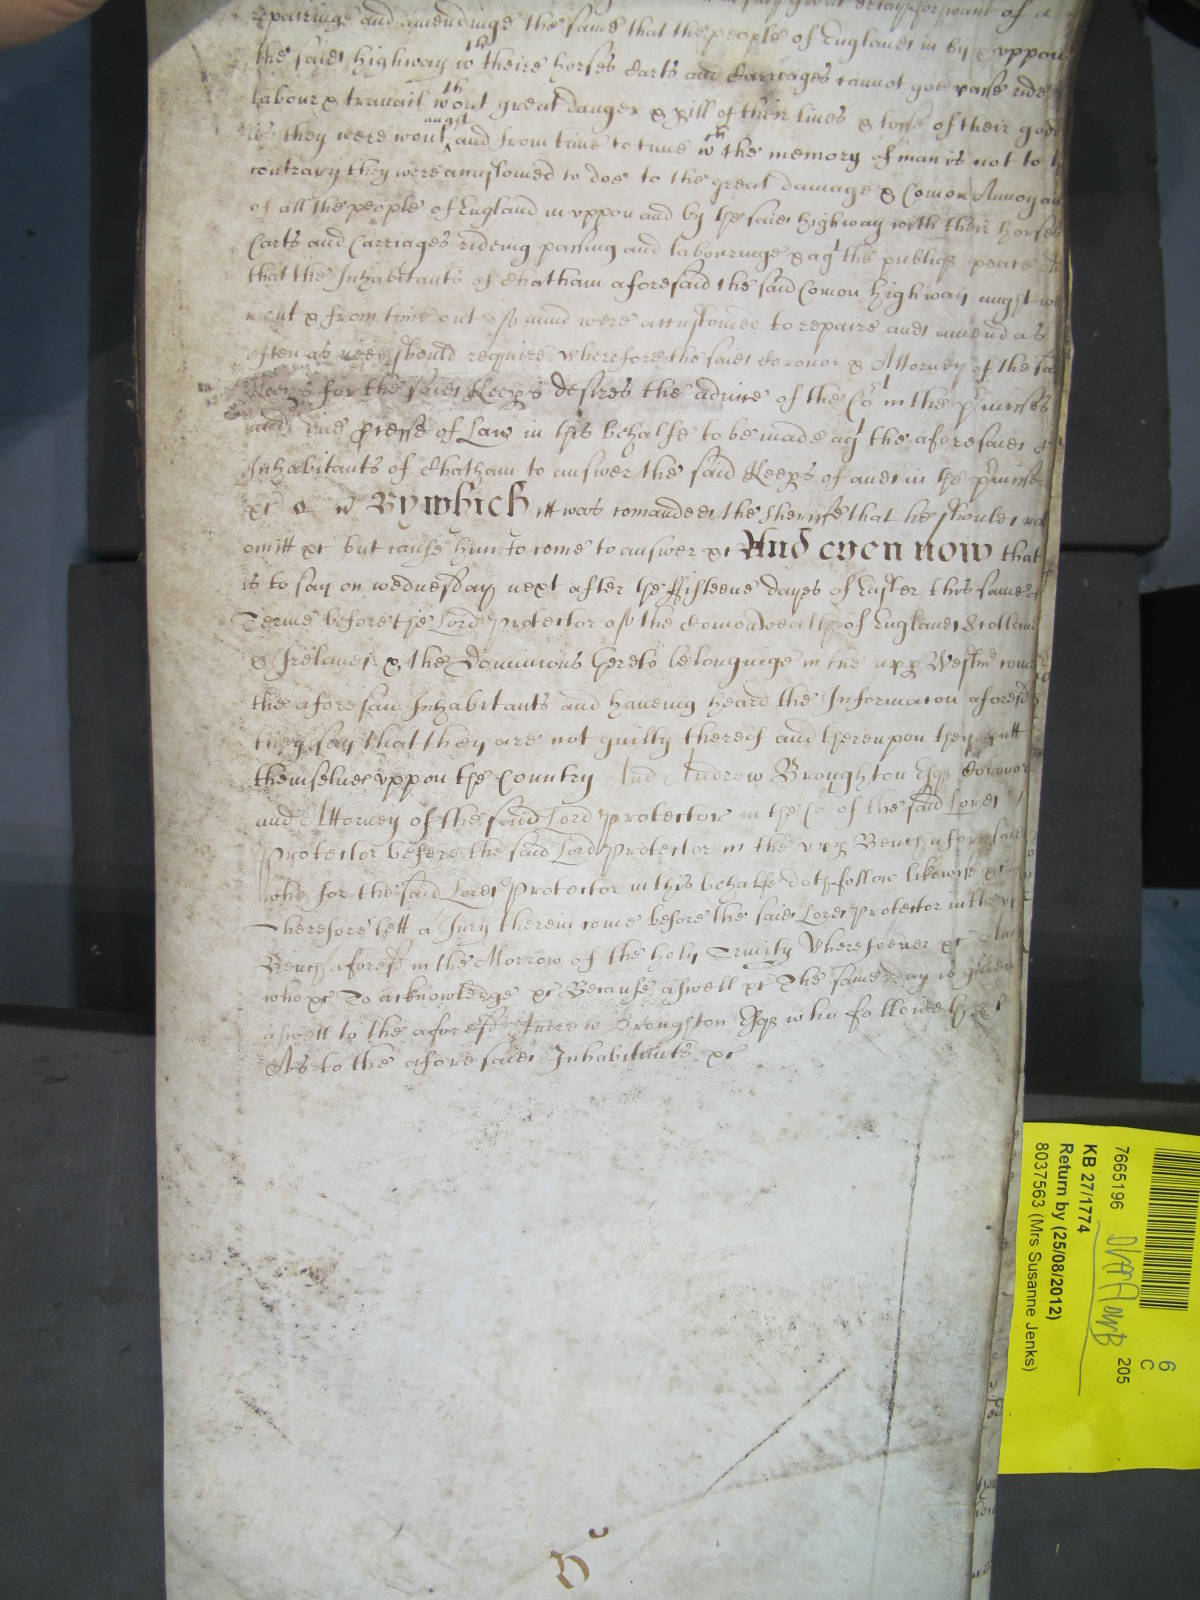 repairinge and amendinge the same that the people of England in by & vppon
the said highway wth theire horses Carts and Carriages cannot goe passe ride
labour & travail wthout great danger & pill of their lives & losse of their goods
as they were wont aught and from time to time wch the memory of man is not to the
contrary they were accustomed to doe to the great damage & Comon Annoyan
of all the people of England in vppon and by the said highway with their horses
Carts and Carriages rideing passing and labouringe & agt the publiq peace And
that the Inhabitants of Chatham aforesaid the said Comon highway aught we
wont & from time out of mind were accustomed to repaire and amend as
often as need should require wherefore the said Coronor & Attorney of the said
Keeps for the said Keeps desires the advice of the Cot in the pmisses
and due pcesse of Law in this behalfe to be made agt the aforesaid
Inhabitants of Chatham to answer the said Keeps of and in the pmisses
&c By which itt was comanded the Sheriffe that he should not
omitt &c but cause him to come to answer &c And even now that
is to say on wednesday next after the ffifteene dayes of Easter this same
Terme before the Lord Protector of the Comonwealth of England Scotland
& Ireland & the Dominions thereto belonginge in the vpp Bench Westm come
the aforesaid Inhabitants and haveing heard the Informacon aforesd
they say that they are not guilty thereof and thereupon they putt
themselves vppon the Country And Andrew Broughton Esq Coronor
and Attorney of the said Lord Protector in the Co of the said Lord
Protector before the said Lord Protector in the vpp Bench aforesaid
who for the said Lord Protector in this behalfe doth follow likewise &c
Therefore lett a Jury therein come before the said Lord Protector in the vpp
Bench aforesd in the Morrow of the holy Trinity Wheresoever &c And
who &c To acknowledge &c Because aswell &c The same day is given
aswell to the aforesd Andrew Broughton Esq who followeth &c
As to the aforesaid Inhabitants &c
7665196
KB 27/1774
Return by (25/08/2012)
8037563 (Mrs Susanne Jenks)
205
6
C